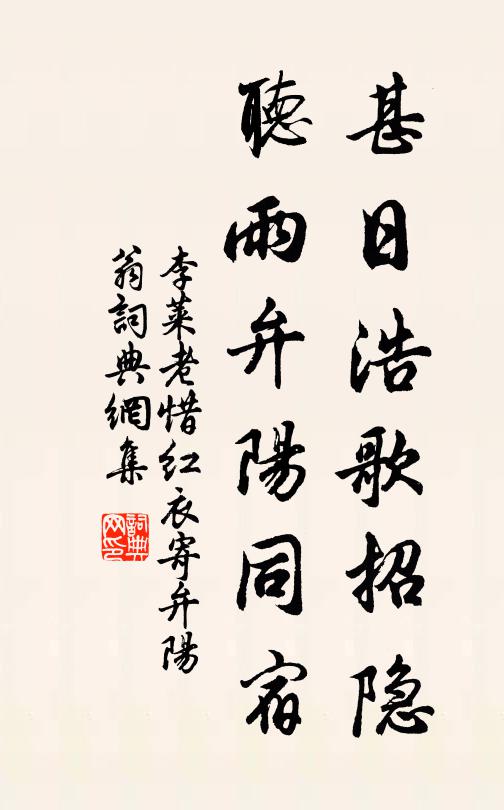 甚日浩歌招隐
聽雨弁陽同宿
李萊老惜红衣寄弁陽
翁詞典網集
詞典网印